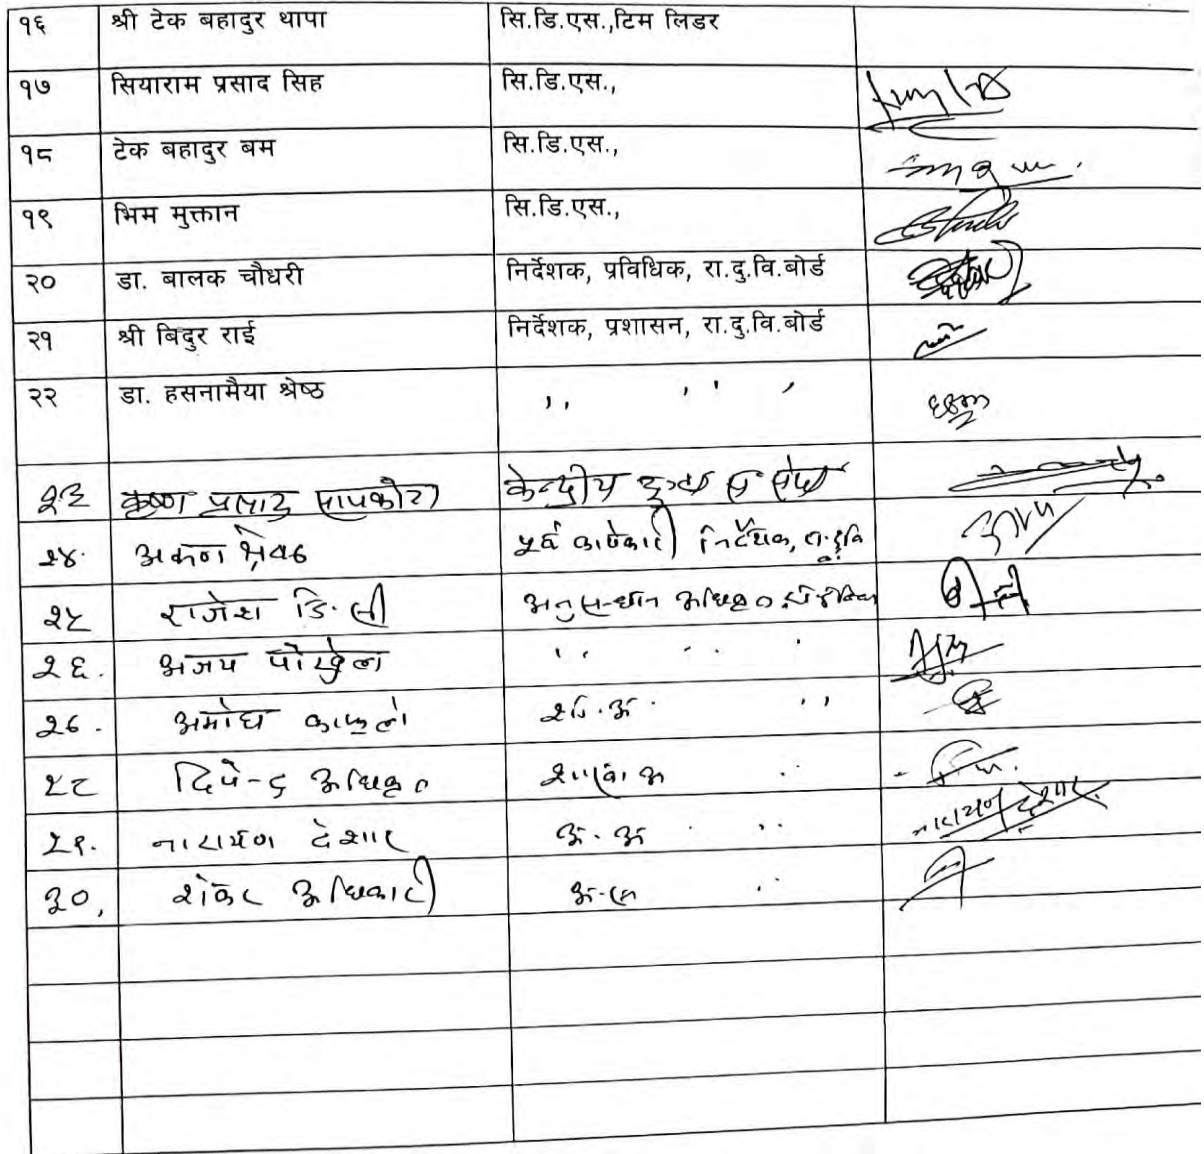 १६ श्री टेक बहादुर थापा सि.डि.एस.,टिम लिडर
१७ सियाराम प्रसाद सिह सि.डि.एस.,
१८ टेक बहादुर बम सि.डि.एस.,
१९ भिम मुक्तान सि.डि.एस.,
२० डा. बालक चौधरी निर्देशक, प्रविधिक, रा.दु.वि.बोर्ड
२१ श्री बिदुर राई निर्देशक, प्रशासन, रा.दु.वि.बोर्ड
२२ डा. हसनामैया श्रेष्ठ ,, ' ' '
२३ कृष्ण प्रसाद सापकोटा केन्द्रीय दुग्ध स संघ
२४. अरुण श्रेष्ठ पूर्व कार्यकारी निर्देशक,
२५ राजेश डि. सी अनुसन्धान अधिकृत
२६. अजय पौखेल ,, ,, ,
२७. अमोघ काफ्ले शा.अ. ,,
२८ दिपेन्द्र अधिकृत शाखा अ ,,
२९. नारायण देशार अ. अ ,, नारायण देशार
३०, शंकर अधिकारी ,,